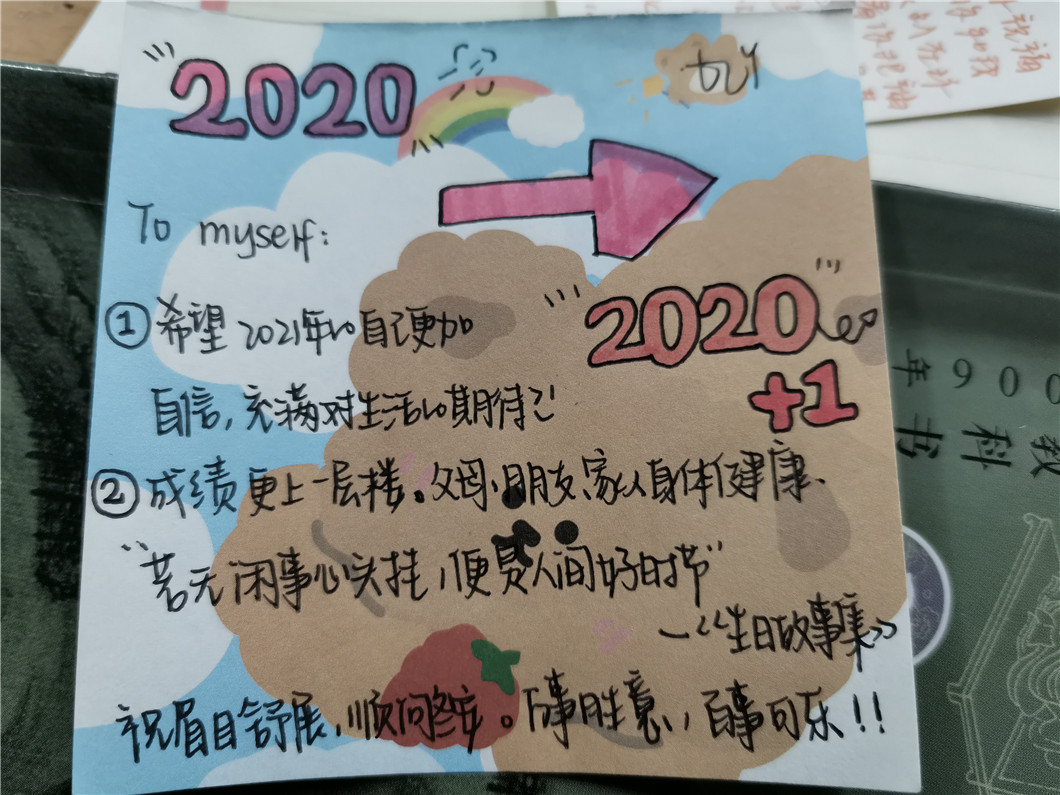 2020
To myself:
2020
+1
①希望2021年的自己更加
自信,充满对生活的期待!
②成绩更上一层楼。父母、朋友、家人身体健康、
“若无闲事心头挂,便是人间好时节”
—《生日故事集》
祝眉目舒展,顺问冬安。万事胜意,百事可乐!!
009年
教科书